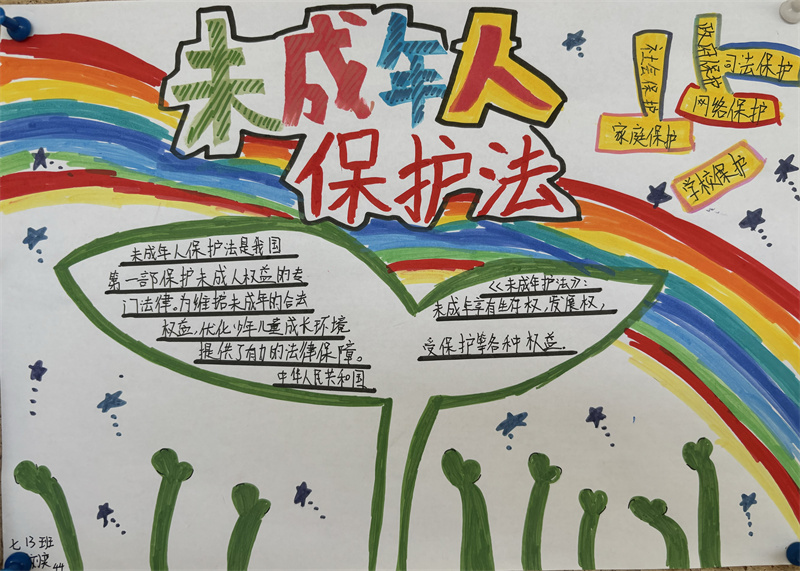 未成年人
保护法
社会保护
政府保护
司法保护
网络保护
家庭保护
学校保护
未成年人保护法是我国
第一部保护未成人权益的专
门法律。为维护未成年的合法
权益,优化少年儿童成长环境
提供了有力的法律保障。
中华人民共和国
《未成年护法》:
未成年享有生存权,发展权,
受保护等各种权益.
七13班
44